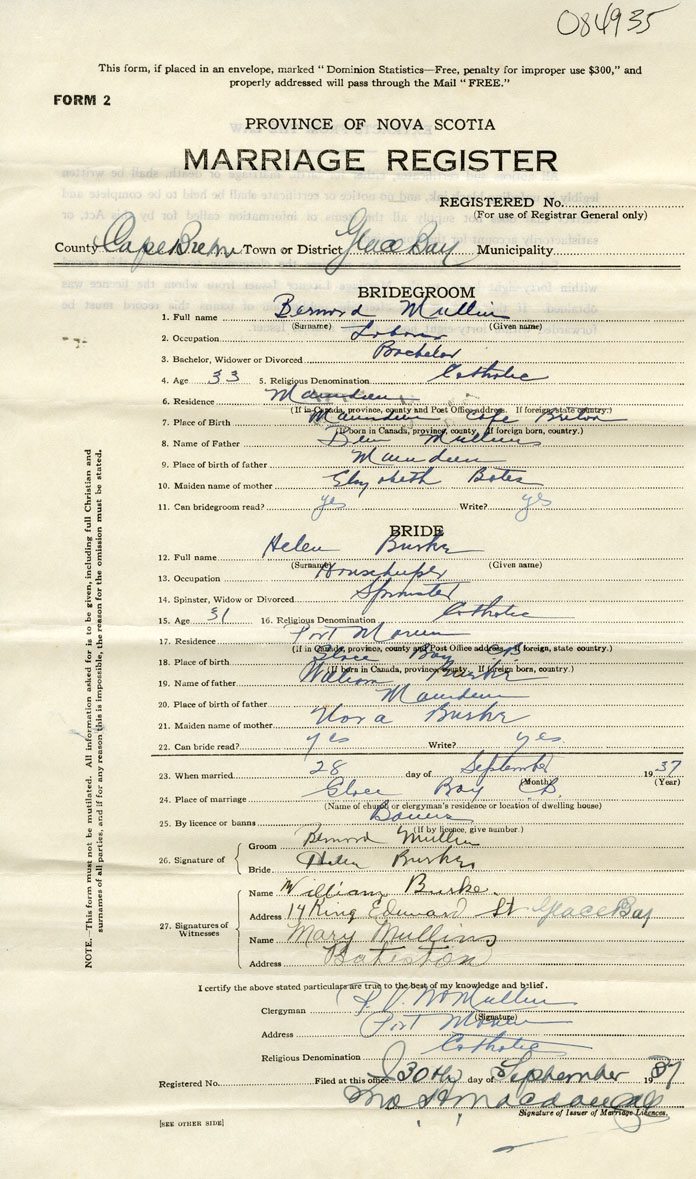 084935
This form, if placed in an envelope, marked "Dominion Statistics—Free, penalty for improper use $300," and
properly addressed will pass through the Mail "FREE."
FORM 2
PROVINCE OF NOVA SCOTIA
MARRIAGE REGISTER
REGISTERED No.
(For use of Registrar General only)
County Cape Breton Town or District Glace Bay Municipality
BRIDEGROOM
1. Full name Bernard Mullin
(Surname) (Given name)
2. Occupation Labour
3. Bachelor, Widower or Divorced Bachelor
4. Age 33 5. Religious Denomination Catholic
6. Residence Mainadieu
(If in Canada, province, county and Post Office address. If foreign, state country.)
7. Place of Birth Mainadieu Cape Breton
(If born in Canada, province, county. If foreign born, country.)
8. Name of Father Mullins
9. Place of birth of father Mainadieu
10. Maiden name of mother Elizabeth Bates
11. Can bridegroom read? yes Write? yes
BRIDE
12. Full name Helen Burke
(Surname) (Given name)
13. Occupation Housekeeper
14. Spinster, Widow or Divorced Spinster
15. Age 31 16. Religious Denomination Catholic
17. Residence Port Morien
(If in Canada, province, county and Post Office address. If foreign, state country.)
18. Place of birth Glace Bay CB
(If born in Canada, province, county. If foreign born, country.)
19. Name of father William Burke
20. Place of birth of father Mainadieu
21. Maiden name of mother Nora Burke
22. Can bride read? yes Write? yes
23. When married 28 day of September 1937
(Month) (Year)
24. Place of marriage Glace Bay CB
(Name of church or clergyman's residence or location of dwelling house)
25. By licence or banns Banns
(If by licence, give number.)
26. Signature of
Groom Bernard Mullin
Bride Helen Burke
27. Signatures of Witnesses
Name William Burke.
Address 14 King Edward St Glace Bay
Name Mary Mullins
Address Bateston
I certify the above stated particulars are true to the best of my knowledge and belief.
Clergyman McMullin
(Signature)
Address Port Morien
Religious Denomination Catholic
Registered No. Filed at this office 30th day of September 1937
Macdougall
Signature of Issuer of Marriage Licences.
[SEE OTHER SIDE]
NOTE.—This form must not be mutilated. All information asked for is to be given, including full Christian and
surnames of all parties, and if for any reason this is impossible, the reason for the omission must be stated.